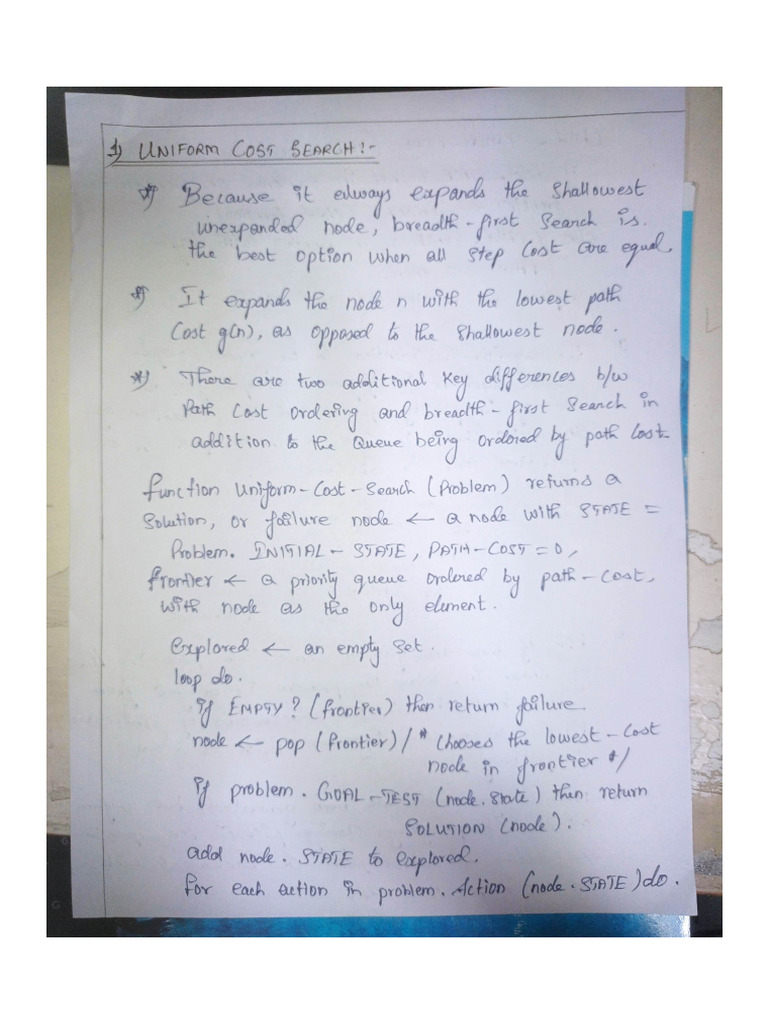 1) UNIFORM COST SEARCH:-
*) Because it always expands the shallowest
unexpanded node, breadth-first search is
the best option when all step cost are equal.
*) It expands the node n with the lowest path
Cost g(n), as opposed to the shallowest node.
*) There are two additional key differences b/w
Path cost ordering and breadth-first search in
addition to the Queue being ordered by path cost.
function Uniform-Cost-Search (Problem) returns a
Solution, or failure node ← a node with STATE =
Problem. INITIAL-STATE, PATH-COST=0,
frontier ← a priority queue ordered by path-cost,
with node as the only element.
Explored ← an empty set.
loop do.
if EMPTY? (frontier) then return failure.
node ← pop (frontier) /* Chooses the lowest-cost
node in frontier */
if problem. GOAL-TEST (node.state) then return
SOLUTION (node).
add node. STATE to explored.
for each action in problem. Action (node.STATE) do.